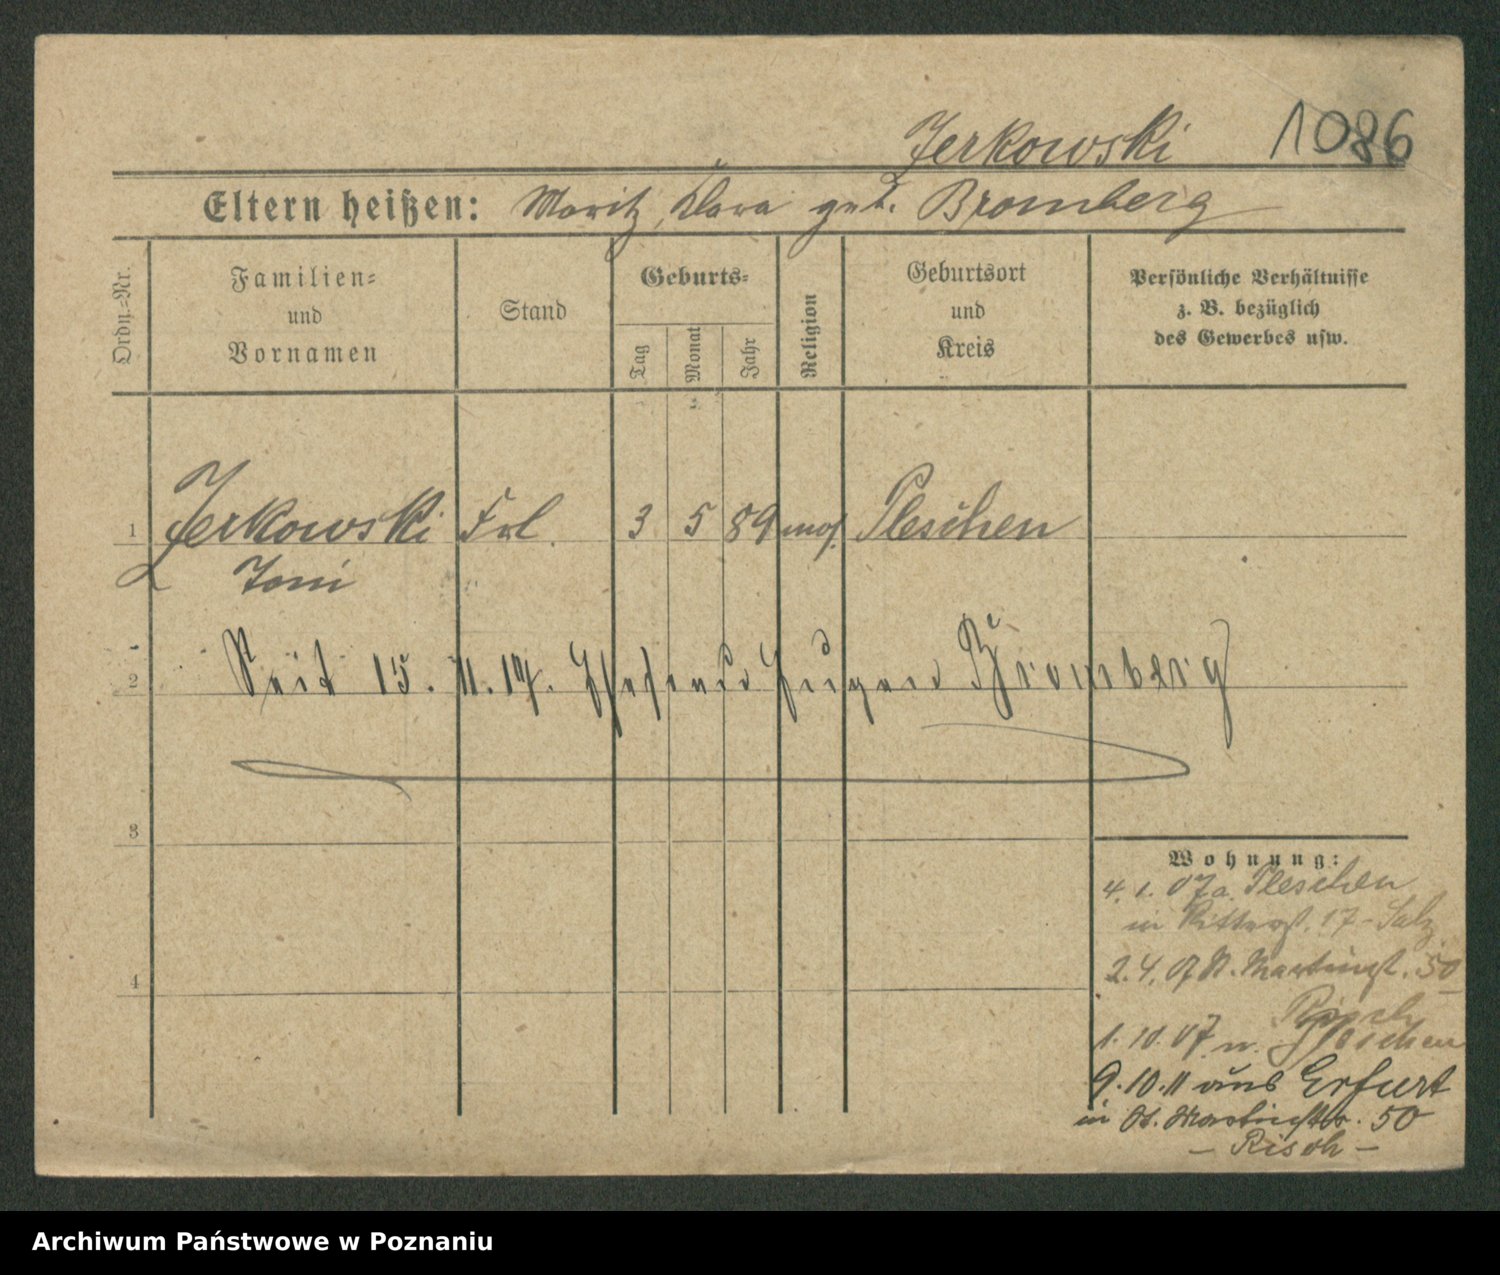 Jerkowski 1086
Eltern heißen: Moritz, Clara geb. Bromberg
Ordn.-Nr.
Familien=
und
Vornamen
Stand
Geburts=
Tag
Monat
Jahr
Religion
Geburtsort
und
Kreis
Persönliche Verhältnisse
z. B. bezüglich
des Gewerbes usw.
1 Jerkowski Frl. 3 5 89 mos. Pleschen
Toni
2 Seit 15. 11. 19. Ehefrau Eugen Bromberg
3
Wohnung:
4. 1. 07 a. Pleschen
in Ritterst. 17 - Salz
4
2. 4. 07 St. Martinst. 50
Risch
1. 10. 07 n. Pleschen
9. 10. 11 aus Erfurt
in St. Martinstr. 50
- Risch -
Archiwum Państwowe w Poznaniu